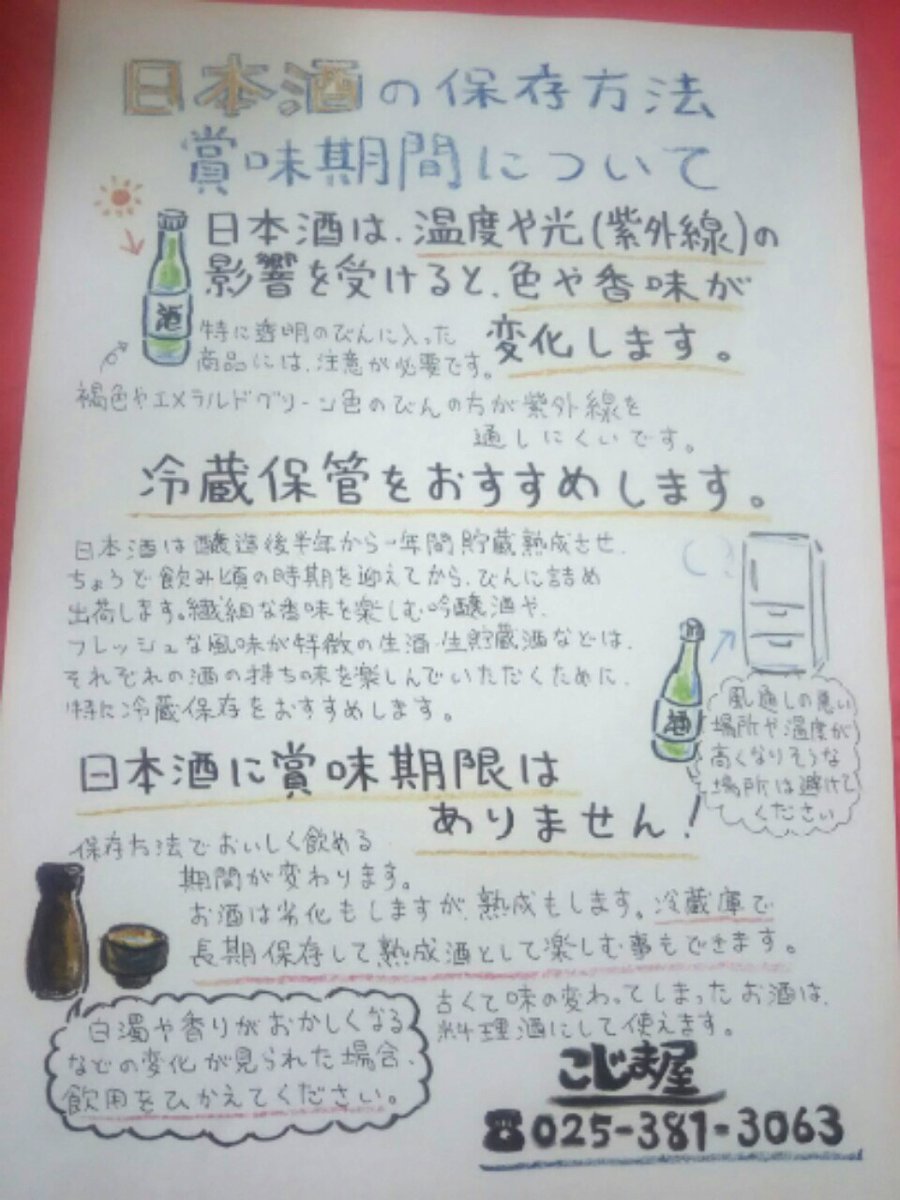 日本酒の保存方法
賞味期間について
日本酒は、温度や光(紫外線)の
影響を受けると、色や香味が
変化します。
特に透明のびんに入った
商品には、注意が必要です。
酒
褐色やエメラルドグリーン色のびんの方が紫外線を
通しにくいです。
冷蔵保管をおすすめします。
日本酒は醸造後半年から一年間貯蔵熟成させ、
ちょうど飲み頃の時期を迎えてから、びんに詰め
出荷します。繊細な香味を楽しむ吟醸酒や、
フレッシュな風味が特徴の生酒・生貯蔵酒などは、
それぞれの酒の持ち味を楽しんでいただくために、
特に冷蔵保存をおすすめします。
酒
風通しの悪い
場所や温度が
高くなりそうな
場所は避けて
ください
日本酒に賞味期限は
ありません!
保存方法でおいしく飲める
期間が変わります。
お酒は劣化もしますが、熟成もします。冷蔵庫で
長期保存して熟成酒として楽しむ事もできます。
古くて味の変わってしまったお酒は、
料理酒にして使えます。
白濁や香りがおかしくなる
などの変化が見られた場合、
飲用をひかえてください。
こじま屋
☎025-381-3063